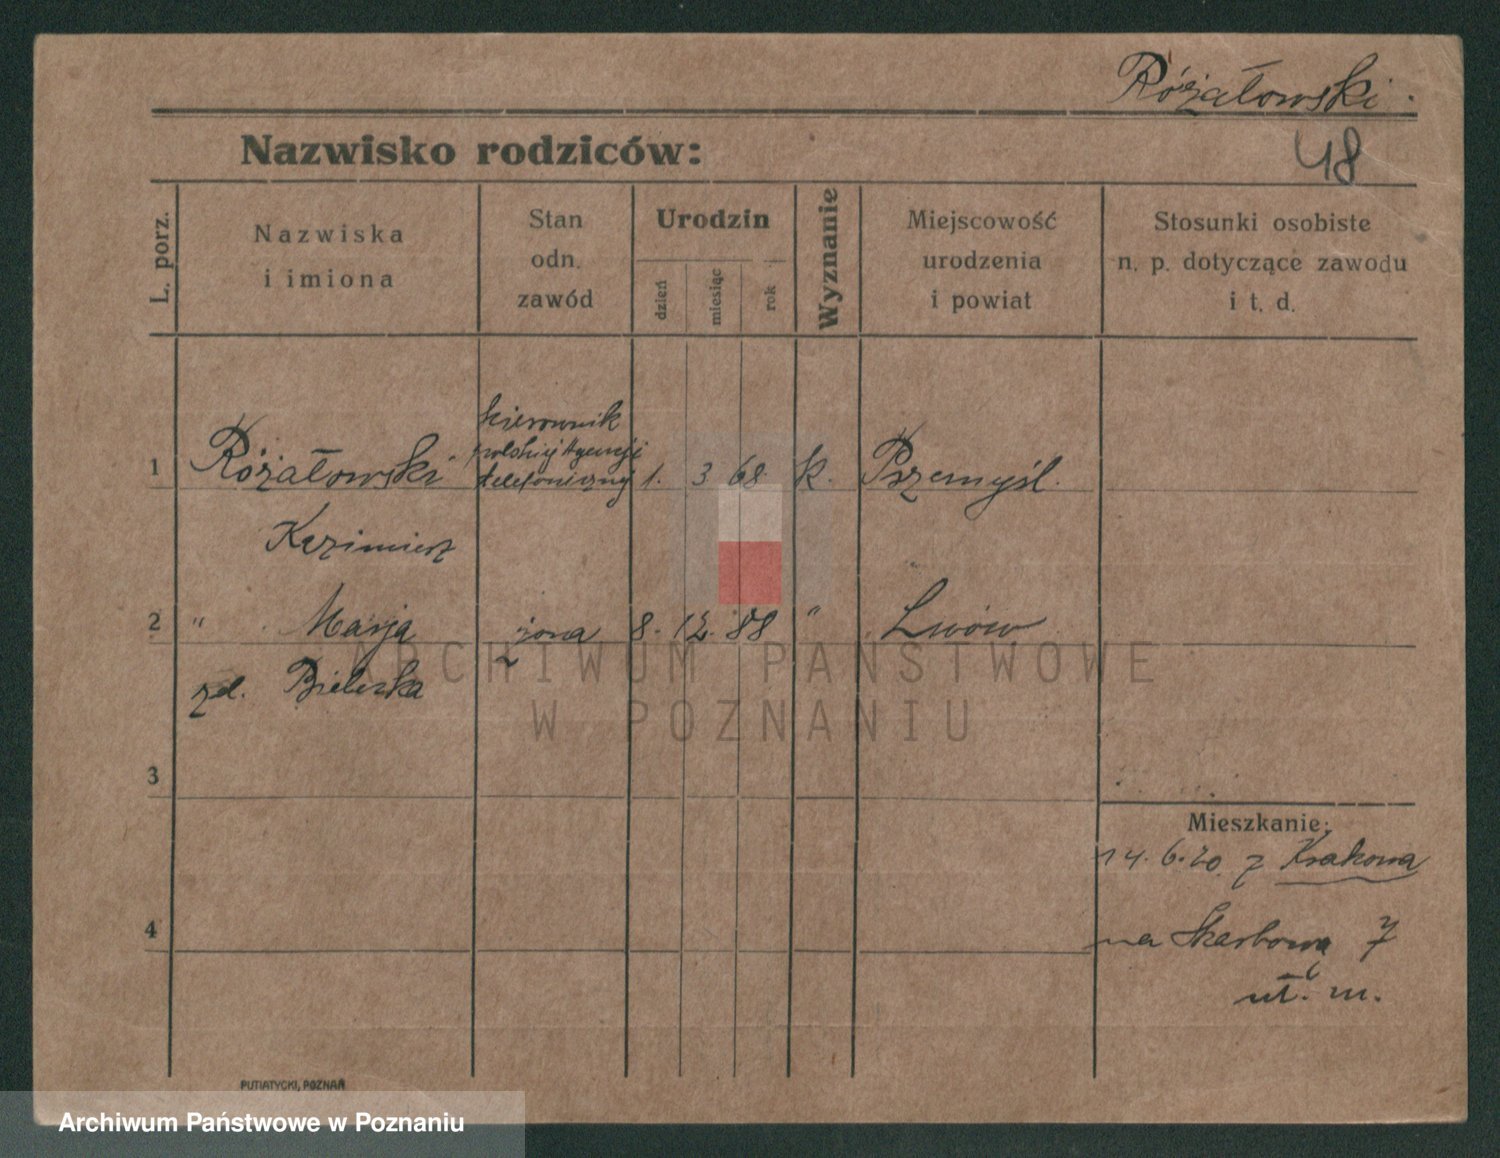 Różałowski
48
Nazwisko rodziców:
L. porz.
Nazwiska
i imiona
Stan
odn.
zawód
Urodzin
dzień
miesiąc
rok
Wyznanie
Miejscowość
urodzenia
i powiat
Stosunki osobiste
n. p. dotyczące zawodu
i t. d.
kierownik
telefoniczny
1 Różałowski 1. 3 68. k. Przemyśl.
Kazimierz
2 " Marja żona 8. 12. 88 " Lwów
zd. Bielecka
ARCHIWUM PAŃSTWOWE
W POZNANIU
3
Mieszkanie:
14. 6. 20. z Krakowa
4
na Skarbową 7
m.
PUTIATYCKI, POZNAŃ
Archiwum Państwowe w Poznaniu